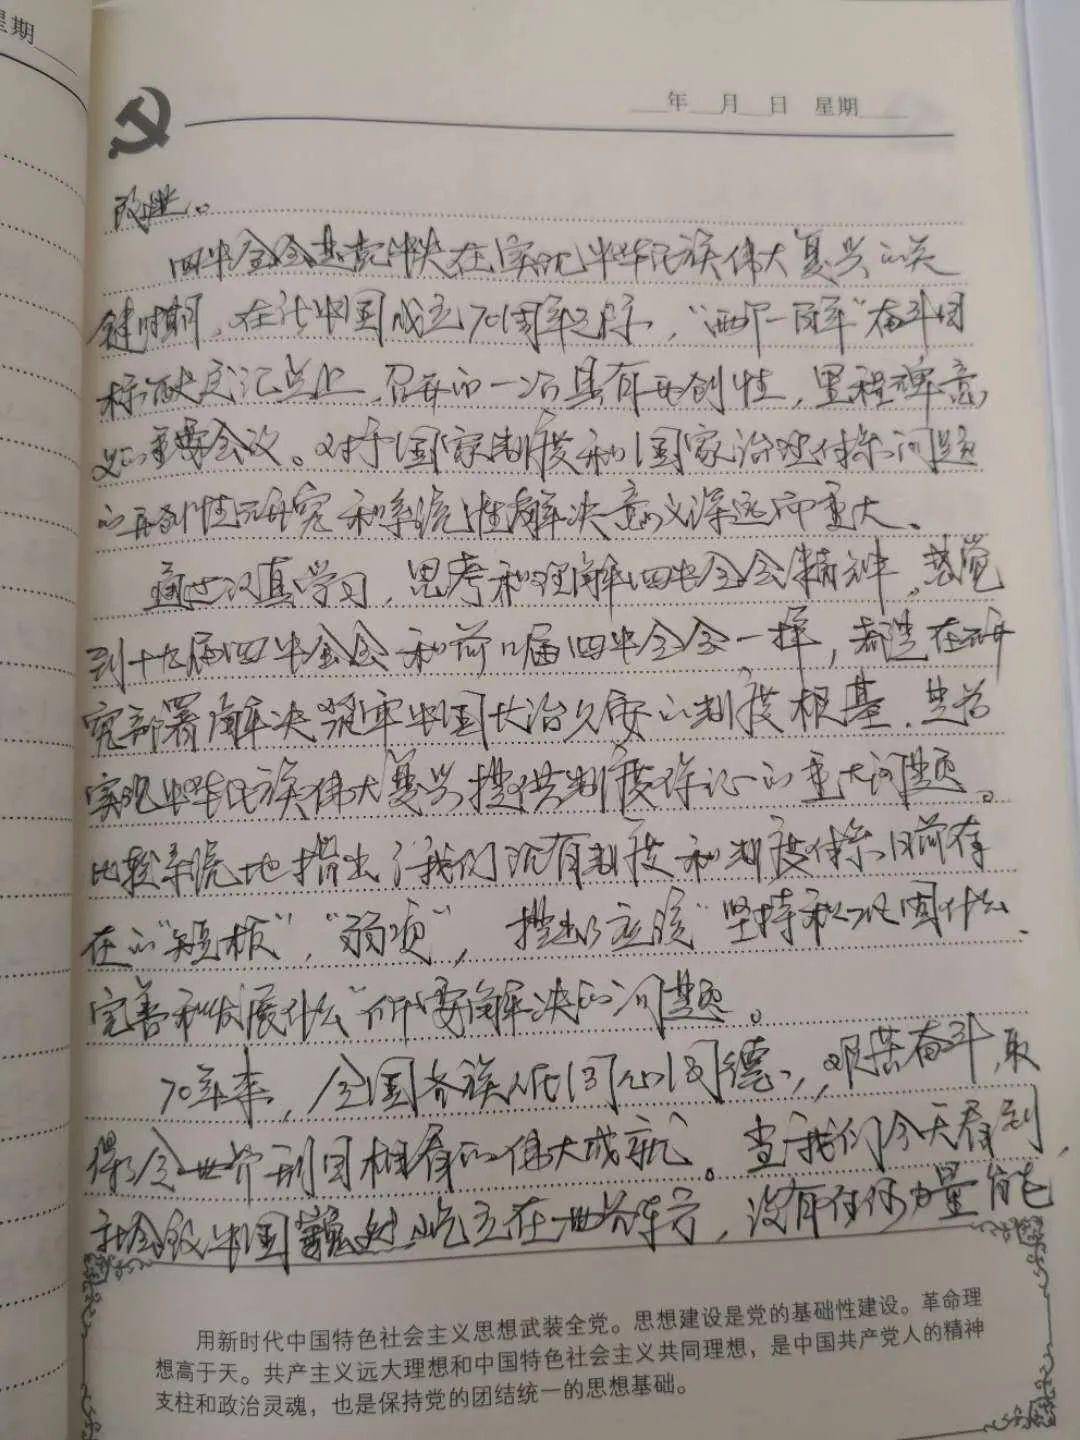 星期
年 月 日 星期
改进。
四中全会是党中央在实现中华民族伟大复兴的关
键时期，在新中国成立70周年之际，“两个一百年”奋斗目
标历史交汇点上，召开的一次具有开创性，里程碑意
义的重要会议。对于国家制度和国家治理体系问题
的开创性研究和系统性解决意义深远而重大。
通过认真学习，思考和理解四中全会精神，感觉
到十九届四中全会和前几届四中全会一样，都是在研
究部署解决筑牢中国长治久安的制度根基，是为
实现中华民族伟大复兴提供制度保证的重大问题。
比较系统地指出了我们现有制度和制度体系目前存
在的“短板”，“弱项”，提出了应该“坚持和巩固什么、
完善和发展什么”所要解决的问题。
70年来，全国各族人民同心同德，艰苦奋斗，取
得了令世界刮目相看的伟大成就。当我们今天看到，
社会主义中国巍然屹立在世界东方，没有任何力量能
用新时代中国特色社会主义思想武装全党。思想建设是党的基础性建设。革命理
想高于天。共产主义远大理想和中国特色社会主义共同理想，是中国共产党人的精神
支柱和政治灵魂，也是保持党的团结统一的思想基础。